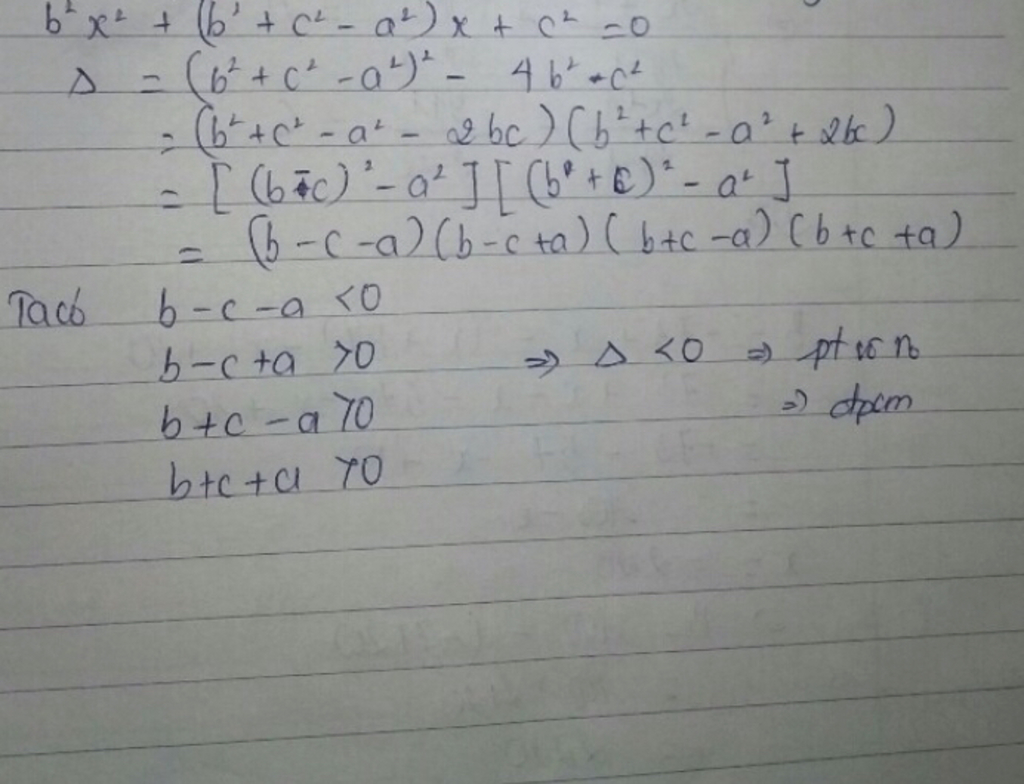 b²x² + (b² + c² - a²)x + c² = 0
Δ = (b² + c² - a²)² - 4b² · c²
= (b² + c² - a² - 2bc)(b² + c² - a² + 2bc)
= [(b - c)² - a²][(b + c)² - a²]
= (b - c - a)(b - c + a)(b + c - a)(b + c + a)
Ta có b - c - a < 0
b - c + a > 0 ⇒ Δ < 0 ⇒ pt vô n₀
b + c - a > 0 ⇒ đpcm
b + c + a > 0